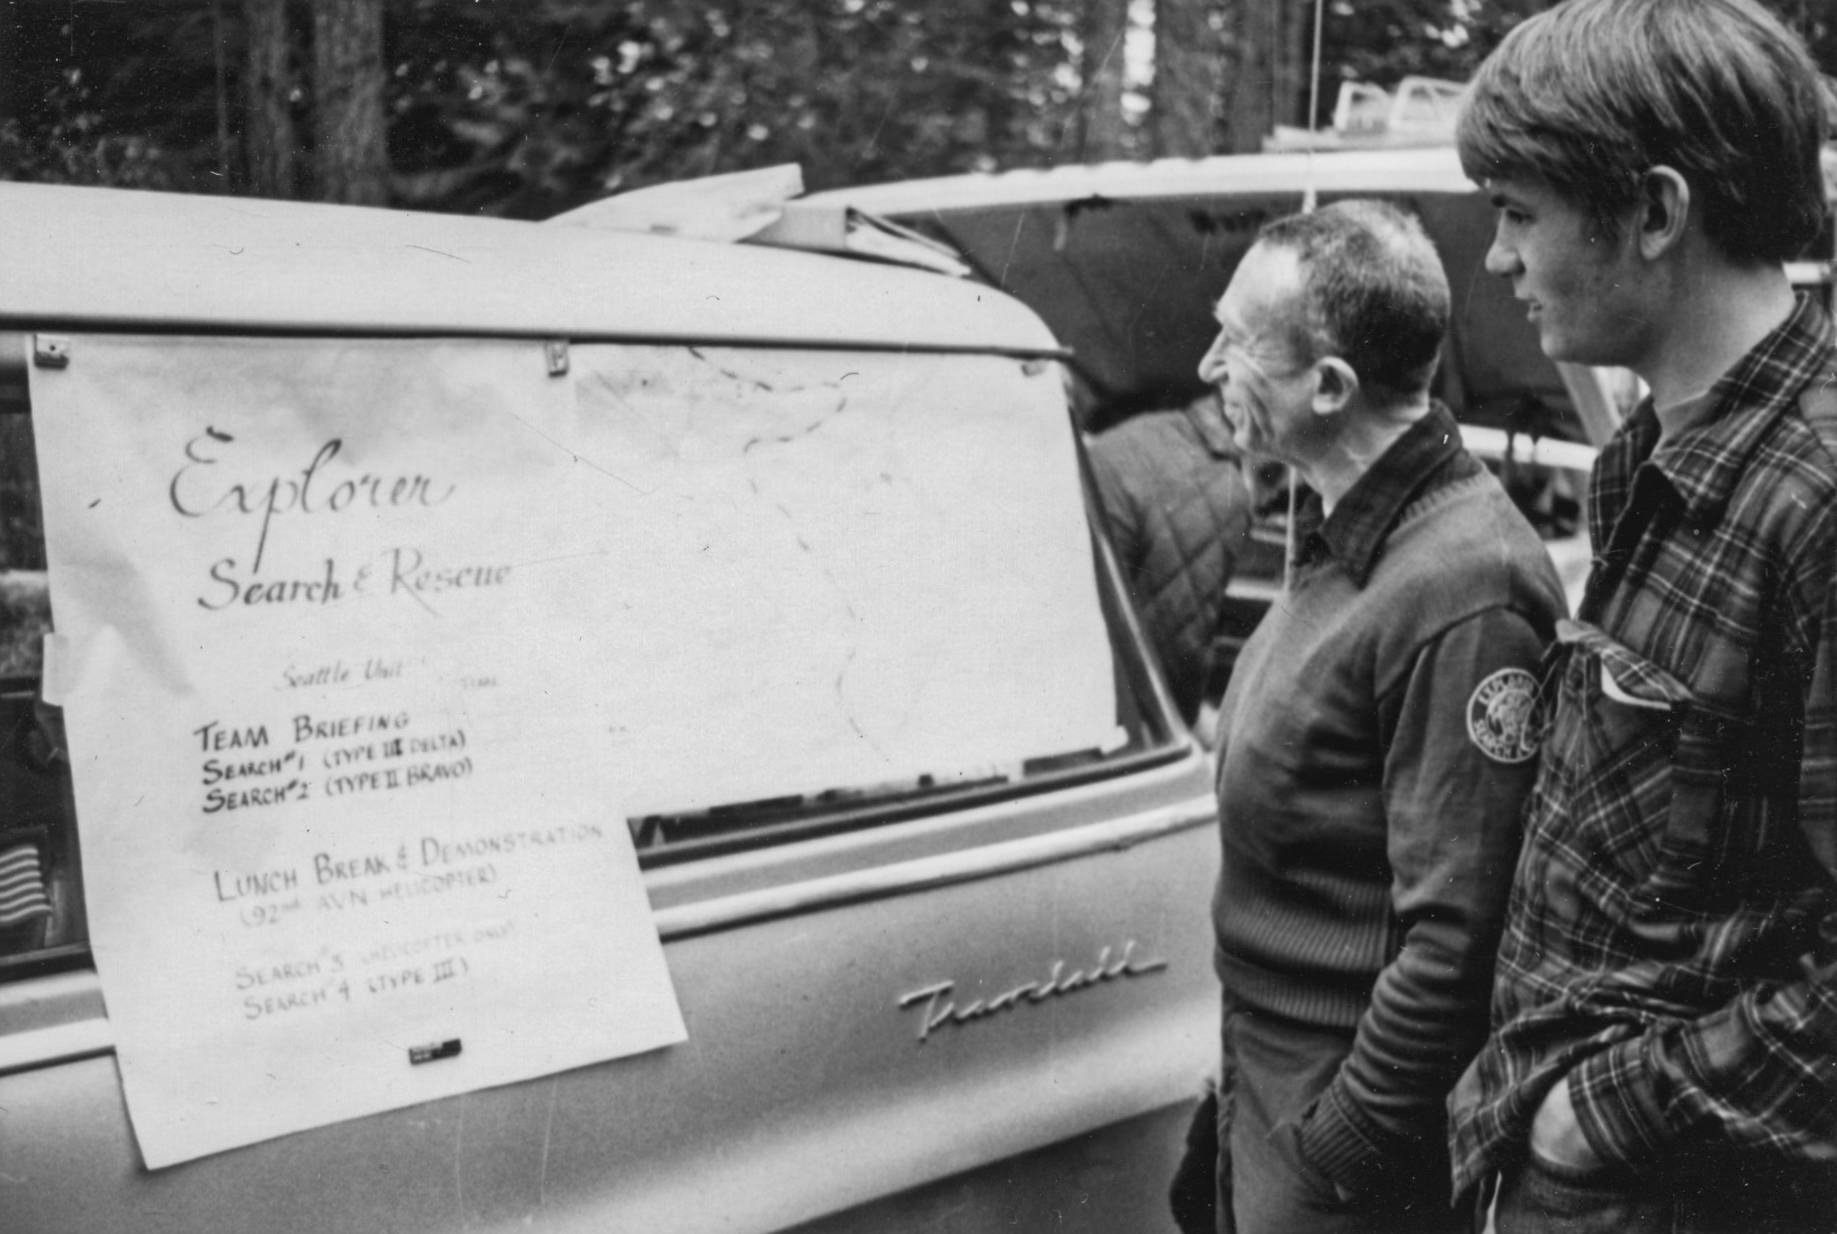 Explorer
Search & Rescue
Seattle Unit
TIME
TEAM BRIEFING
SEARCH #1 (TYPE III DELTA)
SEARCH #2 (TYPE II BRAVO)
LUNCH BREAK & DEMONSTRATION
(92nd AVN HELICOPTER)
SEARCH #3 (HELICOPTER ONLY)
SEARCH #4 (TYPE III)
Travelall
EXPLORER
SEARCH